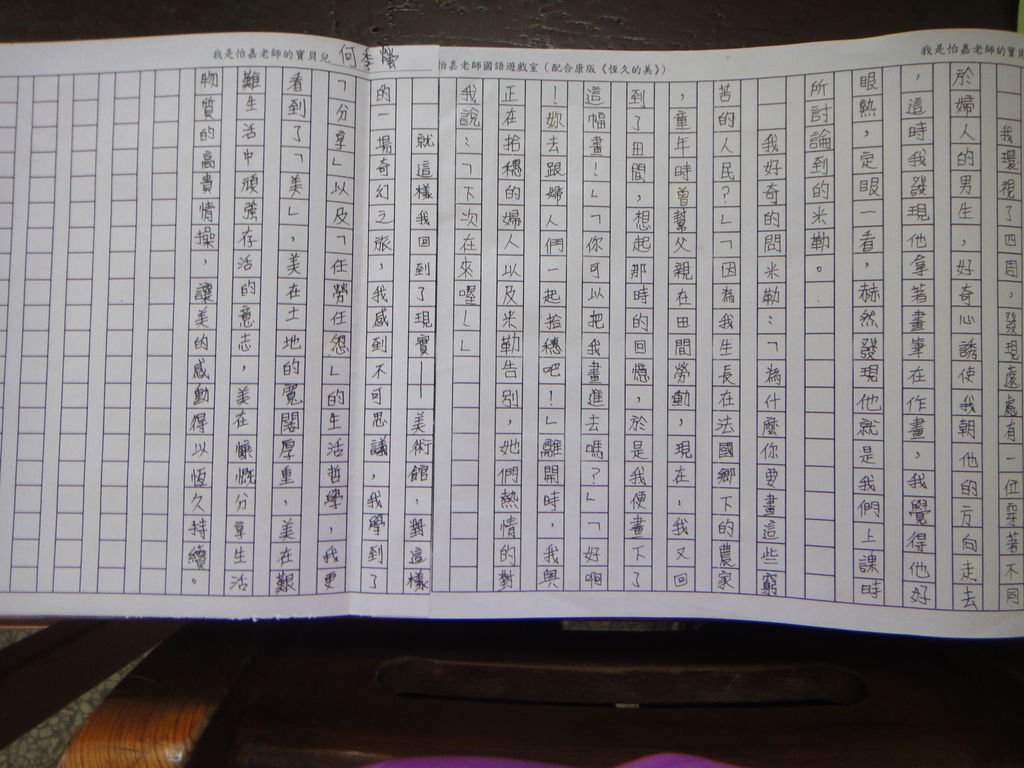 我是怡嘉老師的寶貝
怡嘉老師國語遊戲室（配合康版《恆久的美》）
我是怡嘉老師的寶貝兒 何季
我環視了四周，發現遠處有一位穿著不同
於婦人的男生，好奇心誘使我朝他的方向走去
，這時我發現他拿著畫筆在作畫，我覺得他好
眼熟，定眼一看，赫然發現他就是我們上課時
所討論到的米勒。
我好奇的問米勒：「為什麼你要畫這些窮
苦的人民？」「因為我生長在法國鄉下的農家
，童年時曾幫父親在田間勞動，現在，我又回
到了田間，想起那時的回憶，於是我便畫下了
這幅畫！」「你可以把我畫進去嗎？」「好啊
！妳去跟婦人們一起拾穗吧！」離開時，我與
正在拾穗的婦人以及米勒告別，她們熱情的對
我說：「下次在來喔！」
就這樣我回到了現實——美術館，對這樣
的一場奇幻之旅，我感到不可思議，我學到了
「分享」以及「任勞任怨」的生活哲學，我更
看到了「美」，美在土地的寬闊厚重，美在艱
難生活中頑強存活的意志，美在慷慨分享生活
物質的高貴情操，讓美的感動得以恆久持續。